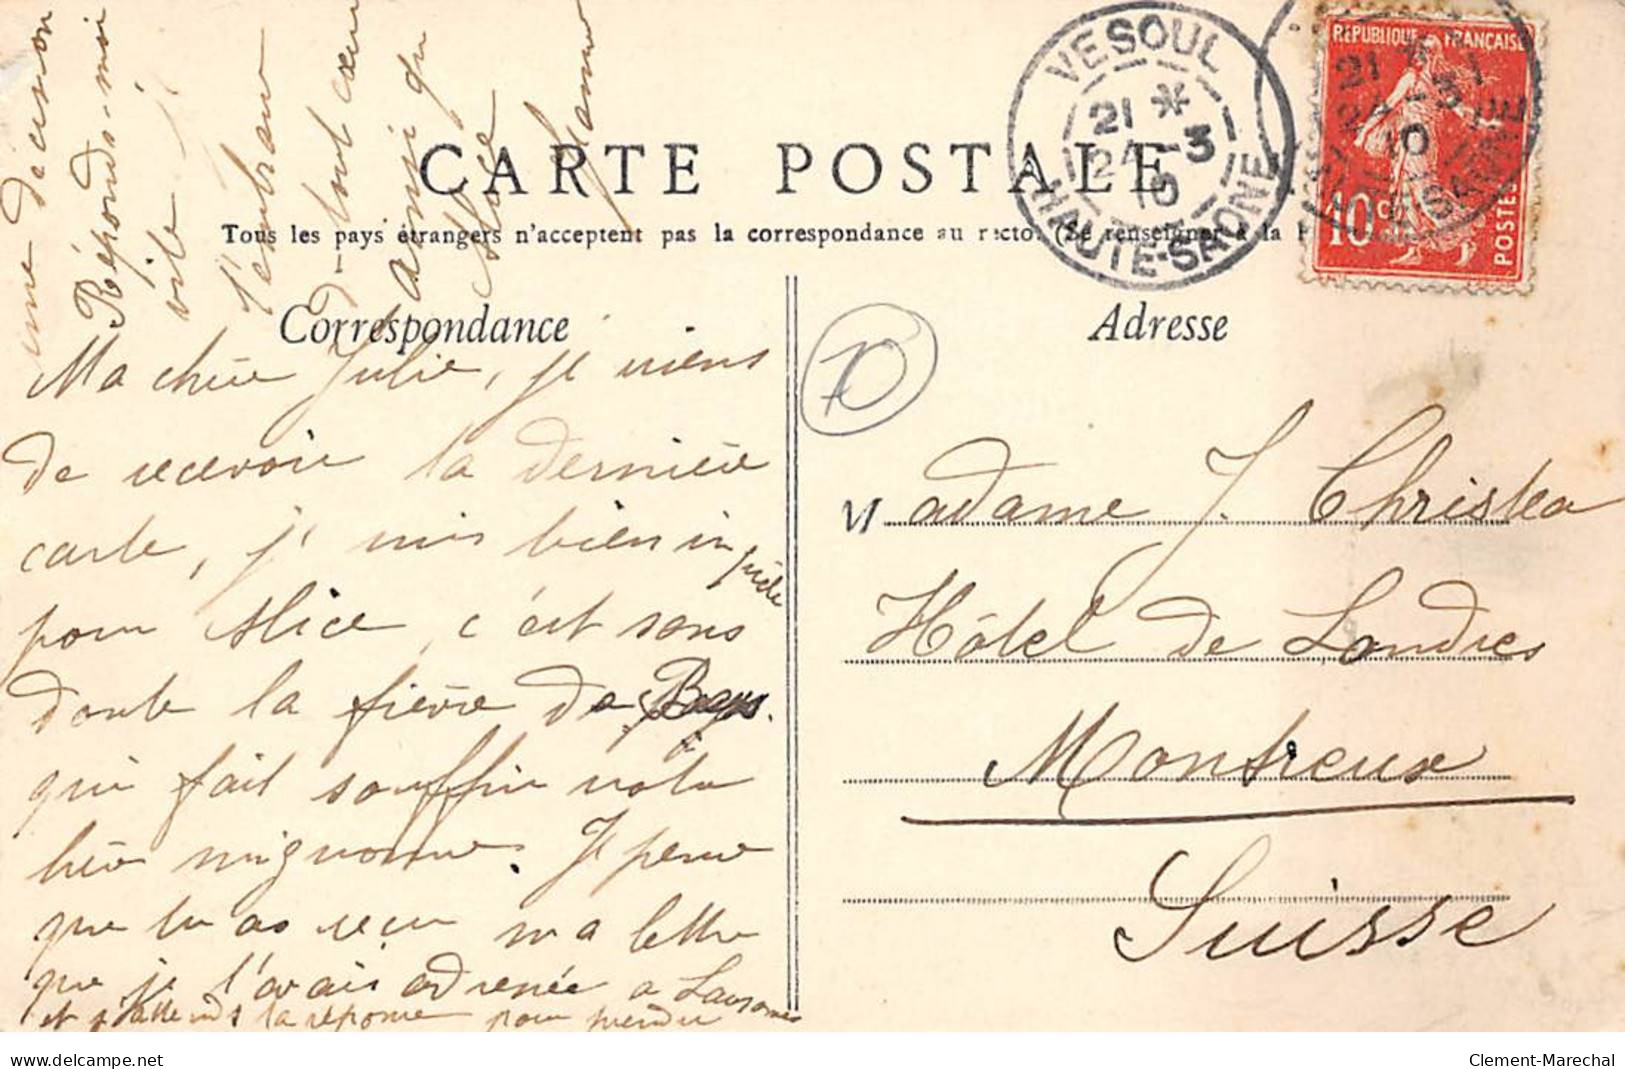 CARTE POSTALE
Tous les pays étrangers n'acceptent pas la correspondance au recto. (Se renseigner à la
Correspondance
Adresse
VESOUL
21 *
24 -3
10
HAUTE-SAONE
REPUBLIQUE FRANÇAISE
10 c
POSTES
70
Ma chère Julie, je viens
de recevoir la dernière
carte, je suis bien inquiète
pour Alice, c'est sans
doute la fièvre de Bays.
qui fait souffrir votre
chère mignonne. Je pense
que tu as reçu ma lettre
que je t'avais adressée a Lausanne
et j'attends ta réponse pour prendre
une décision
Réponds-moi
vite
T'embrasse
de tout cœur
ainsi que
Alice
Madame J. Christea
Hôtel de Londres
Montreux
Suisse
delcampe.net
Clement-Marechal